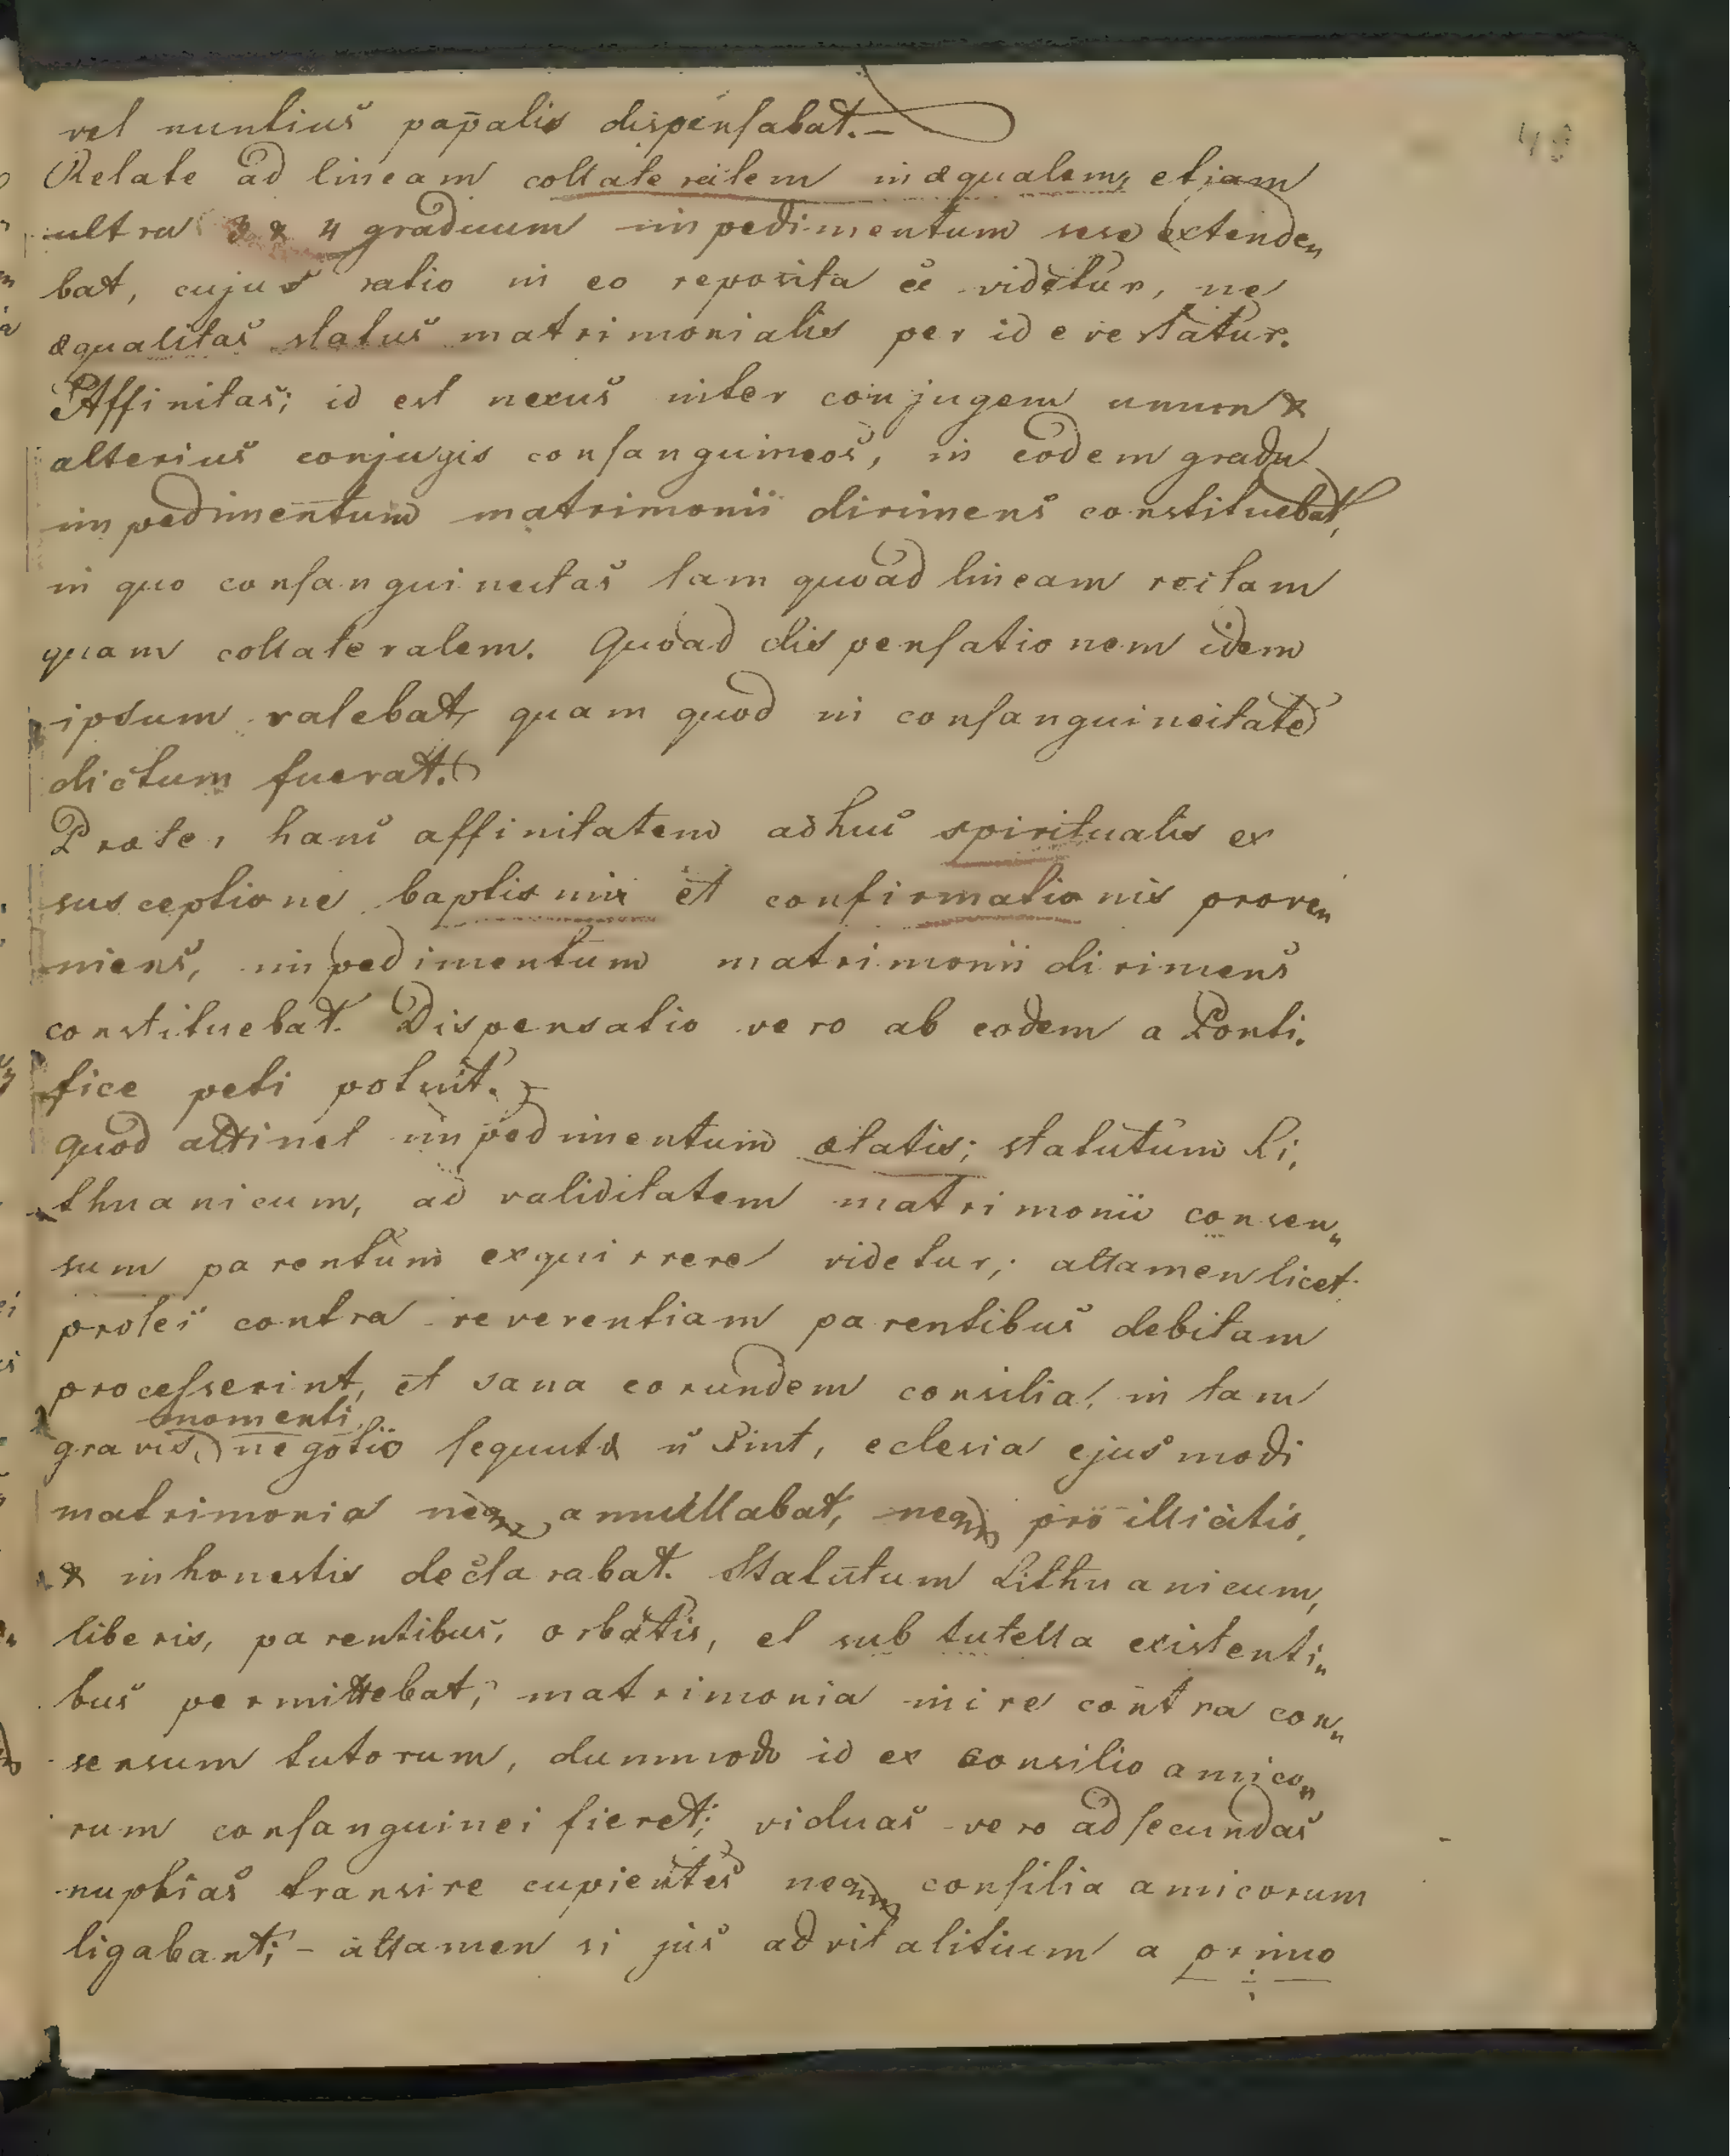 vel nuntius papalis dispensabat.—
49
Relate ad lineam collateralem inæqualem, etiam
ultra 3 & 4 graduum impedimentum sese extende„
bat, cujus ratio in eo reposita ēē videtur, ne
æqualitas status matrimonialis per id evertatur.
Affinitas; id est nexus inter conjugem unum &
alterius conjugis consanguineos, in eodem gradu
impedimentum matrimonii dirimens constituebat,
in quo consanguineitas tam quoad lineam rectam
quam collateralem. Quoad dispensationem idem
ipsum valebat, quam quod in consanguineitate
dictum fuerat.
Præter hanc affinitatem adhuc spiritualis ex
susceptione baptismi et confirmationis prove„
niens, impedimentum matrimonii dirimens
constituebat. Dispensatio vero ab eodem a Ponti.
fice peti potuit.
Quod attinet impedimentum ætatis; statutum Li,
thuanicum, ad validitatem matrimonii consen„
sum parentum exquirrere videtur; attamen licet
proles contra reverentiam parentibus debitam
processerint, et sana eorundem consilia, in tam
momenti
gravis negotio sequuta n̄ sint, eclesia ejusmodi
matrimonia neq annullabat, neq pro illicitis,
& inhonestis declarabat. Statutum Lithuanicum,
liberis, parentibus, orbatis, et sub tutella existenti„
bus permittebat, matrimonia inire contra con„
sensum tutorum, dummodo id ex consilio amico„
rum consanguinei fieret; viduas vero ad secundas
nuptias transire cupientes neq consilia amicorum
ligabant; – attamen si jus advitalitium a primo